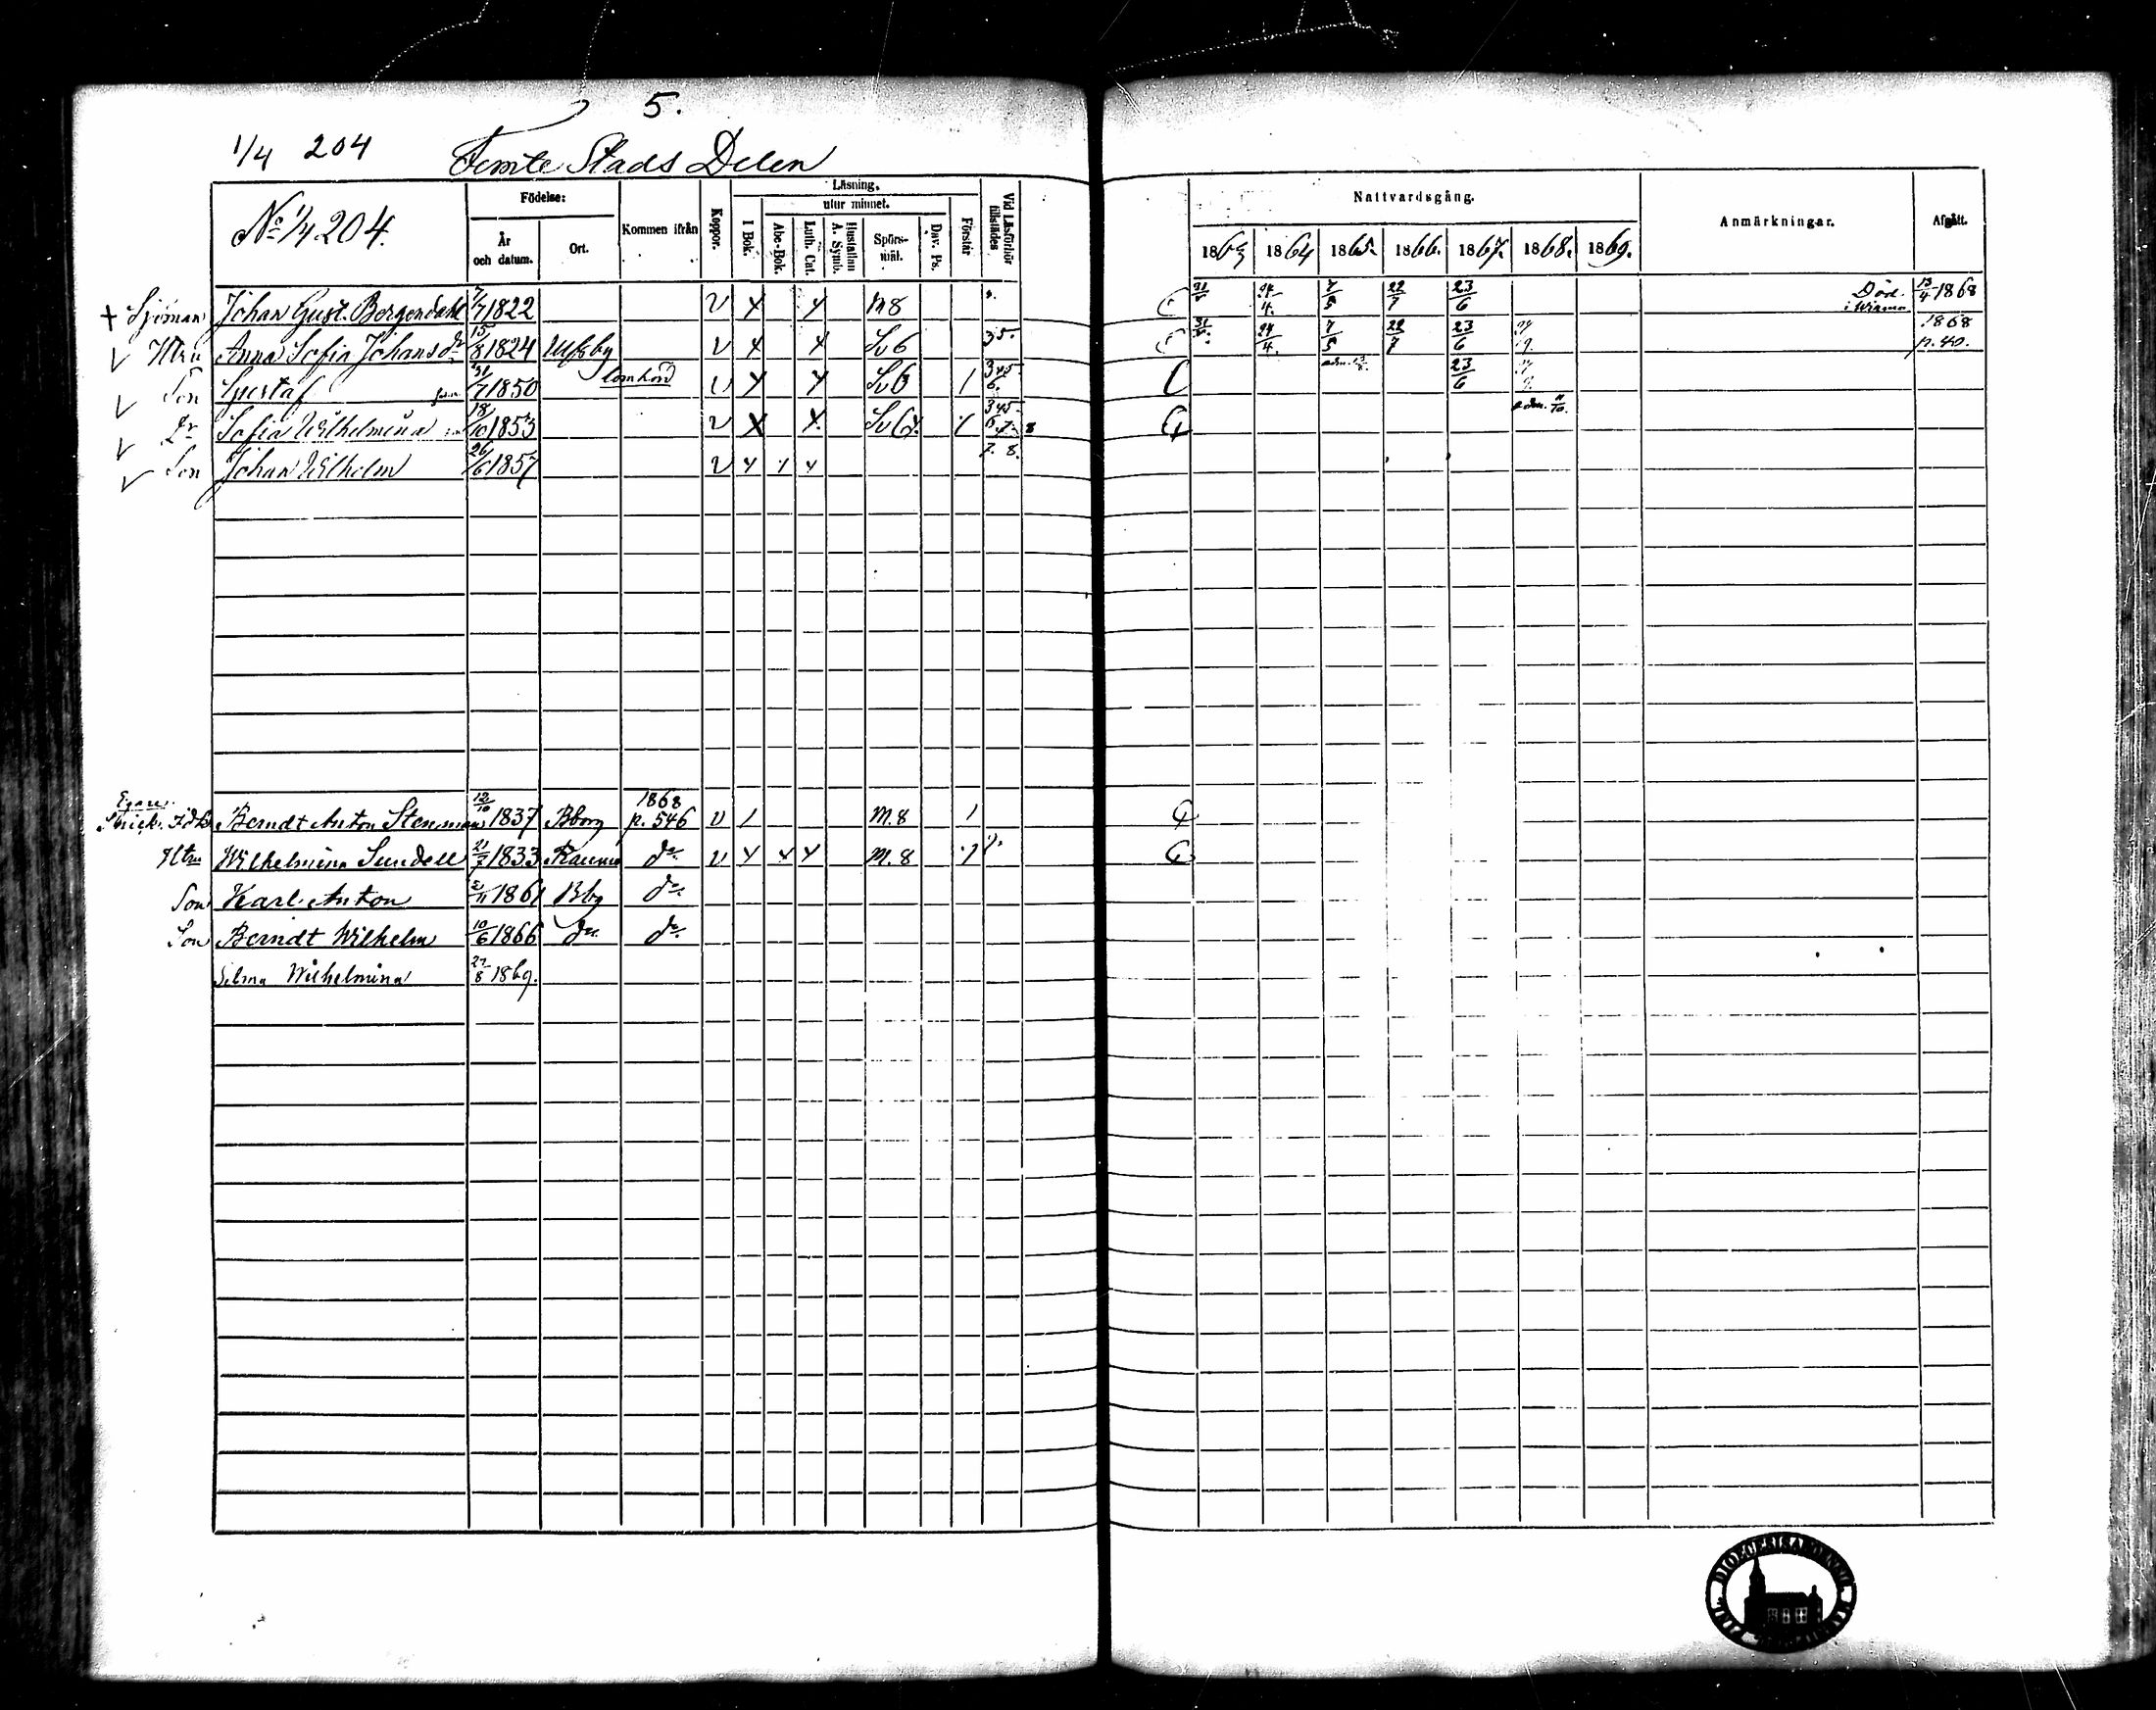 5.
1/4 204 Femte Stads Delen
No 1/4 204.
Födelse:
År och datum.
Ort.
Kommen ifrån
Koppor.
Läsning.
I Bok.
utur minnet.
Abc-Bok.
Luth. Cat.
Hustaflan A. Symb.
Spörs-mål.
Dav. Ps.
Förstår
Vid Läsförhör tillstädes
Nattvardsgång.
1863 1864 1865. 1866. 1867. 1868. 1869.
Anmärkningar.
Afgått.
+ Sjöman Johan Gust. Bergendahl 7/7 1822 v x x M8 24/4. 7/5 22/7 23/6 Död. i Wismar 13/4 1868
v Htru Anna Sofia Johansdr 15/8 1824 Ulfsby v x x Sv 6 35. 24/4 7/5 22/7 23/6 1868 p. 40.
v Son Gustaf 31/7 1850 v x x Sv 6 1 345 6. 23/6
v Dr Sofia Wilhelmina 18/10 1853 v x x Sv 6 345 6 7 8 adm. 11/10.
v Son Johan Wilhelm 26/6 1857 v x x x 7. 8.
Egare
Berndt Anton Stenman 12/10 1837 Bborg 1868 p. 546 v 1 M.8 1
Htru Wilhelmina Sundell 21/7 1833 Raumo do v x x x M.8
Son Karl Anton 2/11 1861 Bbg do
Son Berndt Wilhelm 10/6 1866 do do
Selma Wilhelmina 27/8 1869.